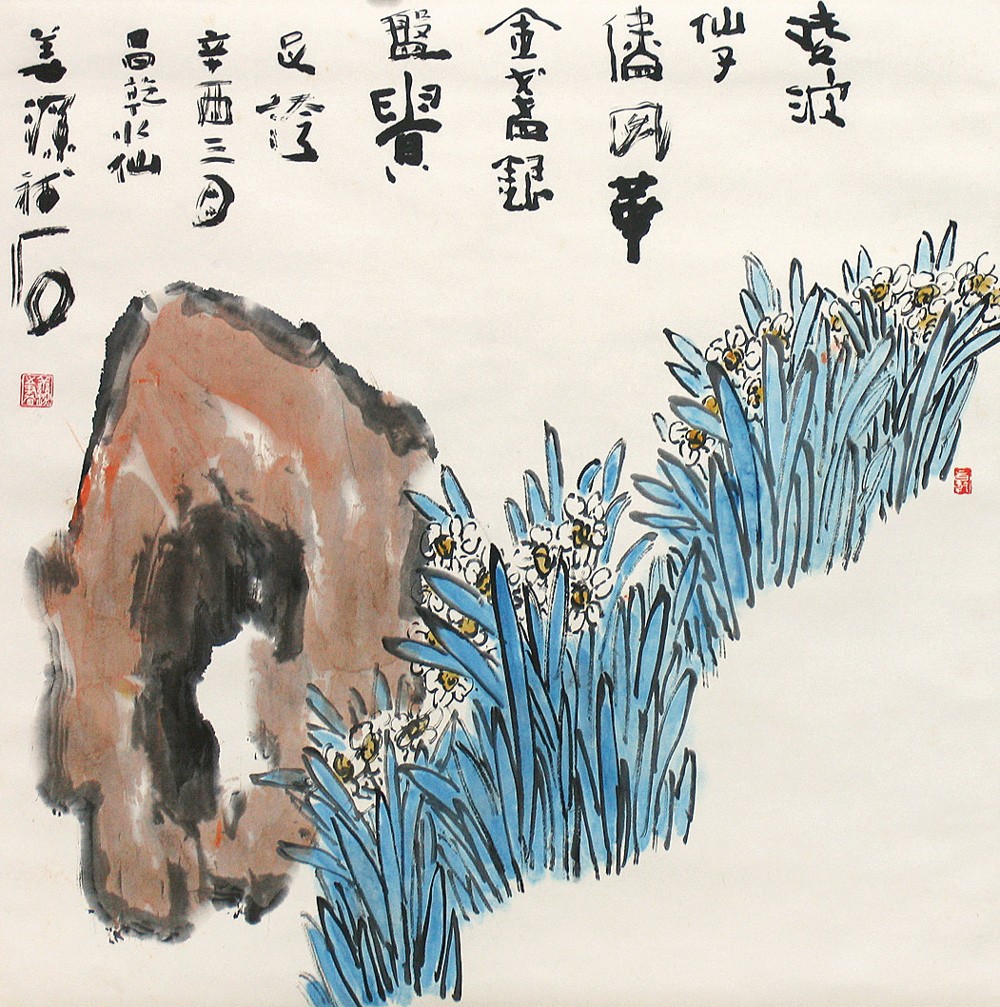 凌波
仙子
儘風華
金盞銀
盤貴
足誇
辛酉三月
昌乾水仙
姜補石